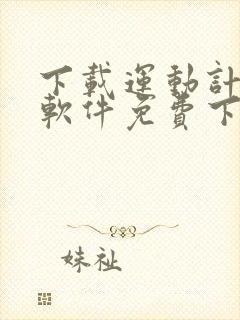 下載運動計
軟件免費下
妹祉